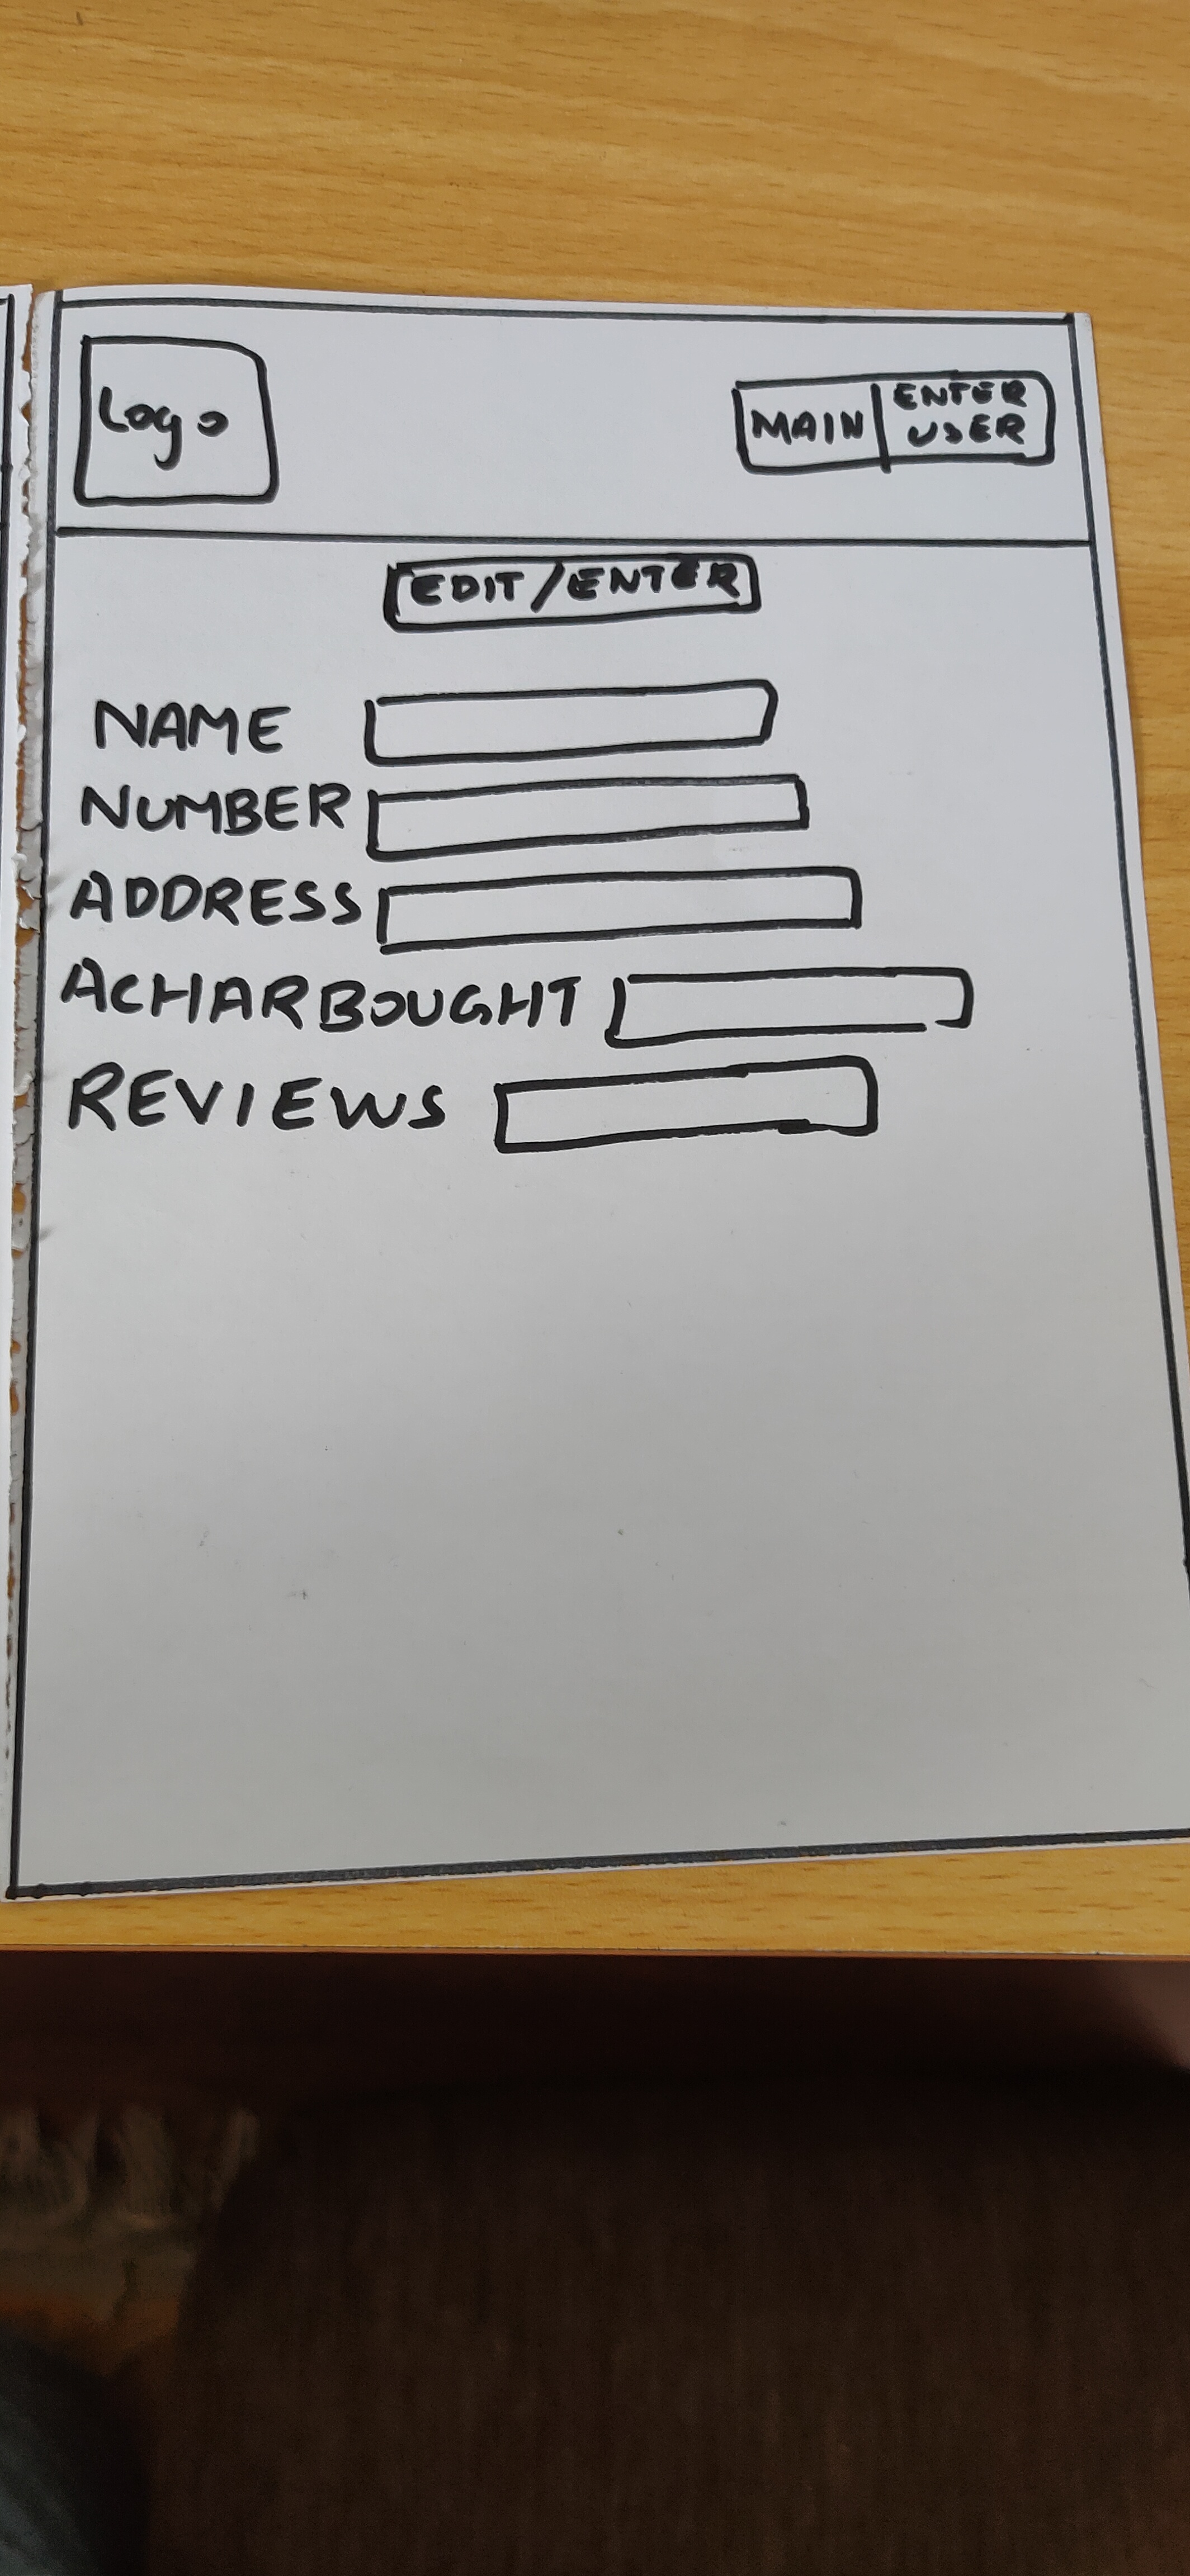 Logo
MAIN
ENTER
USER
EDIT/ENTER
NAME
NUMBER
ADDRESS
ACHAR BOUGHT
REVIEWS